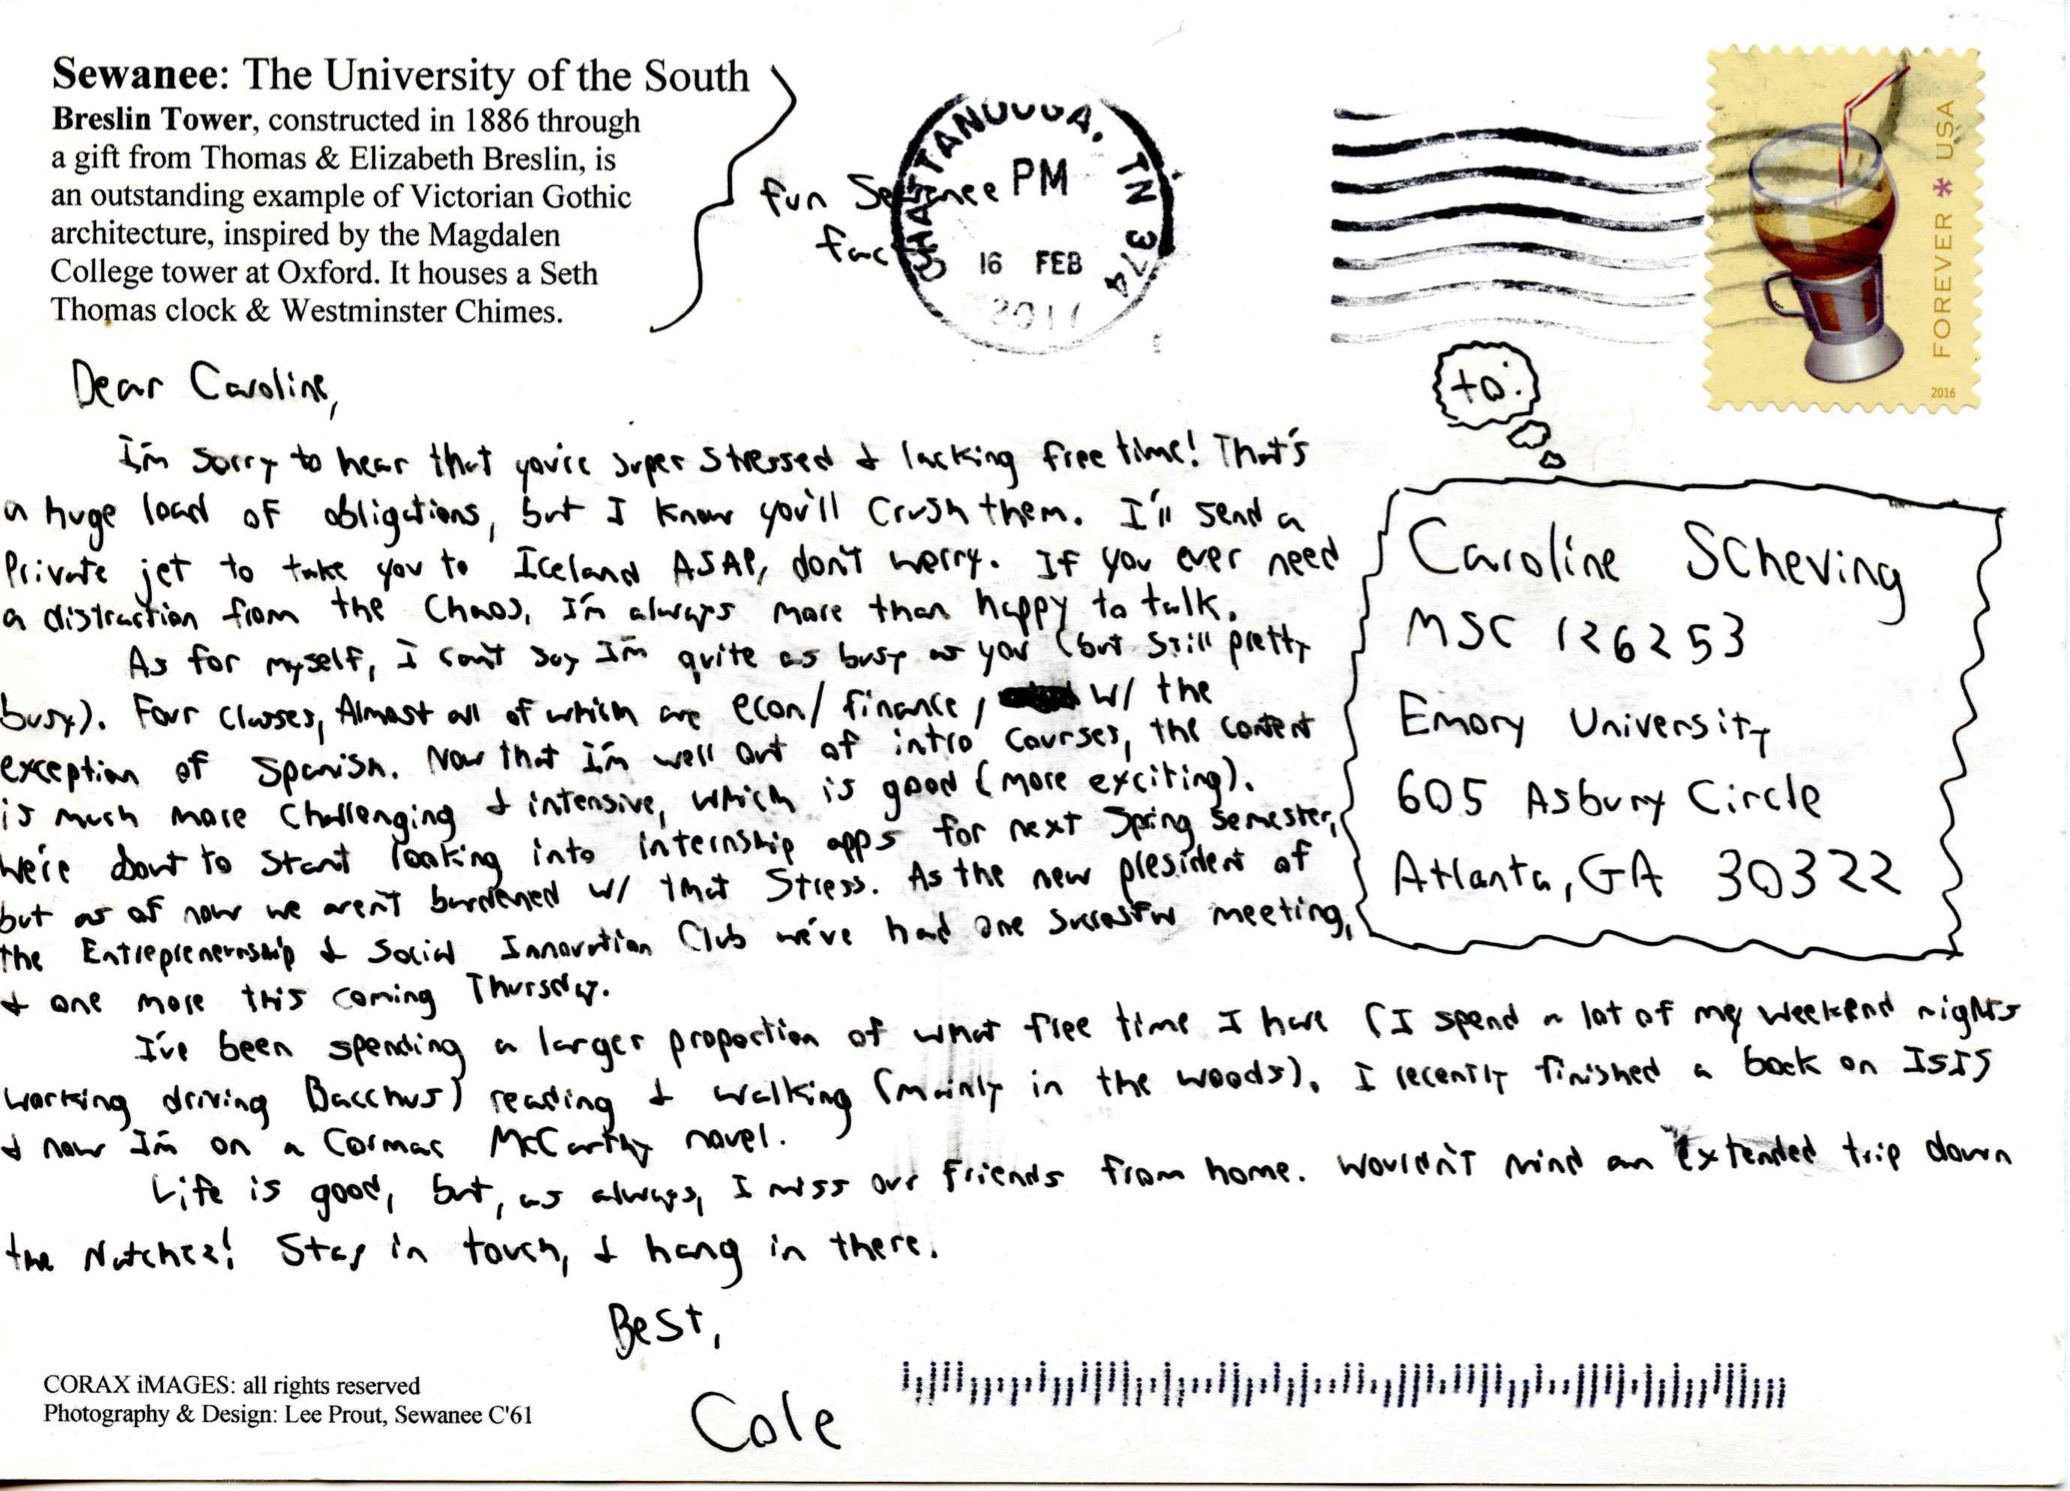 Sewanee: The University of the South
Breslin Tower, constructed in 1886 through
a gift from Thomas & Elizabeth Breslin, is
an outstanding example of Victorian Gothic
architecture, inspired by the Magdalen
College tower at Oxford. It houses a Seth
Thomas clock & Westminster Chimes.
fun Sewanee
fact
CHATTANOOGA, TN 374
PM
16 FEB
2017
FOREVER * USA
2016
to:
Caroline Scheving
MSC 126253
Emory University
605 Asbury Circle
Atlanta, GA 30322
Dear Caroline,
I'm sorry to hear that you're super stressed & lacking free time! That's
a huge load of obligations, but I know you'll crush them. I'll send a
private jet to take you to Iceland ASAP, don't worry. If you ever need
a distraction from the chaos, I'm always more than happy to talk.
As for myself, I can't say I'm quite as busy as you (but still pretty
busy). Four classes, Almost all of which are econ/finance, w/ the
exception of Spanish. Now that I'm well out of intro courses, the content
is much more challenging & intensive, which is good (more exciting).
We're about to start looking into internship apps for next Spring semester,
but as of now we aren't burdened w/ that stress. As the new president of
the Entrepreneurship & Social Innovation Club we've had one succesful meeting,
& one more this coming Thursday.
I've been spending a larger proportion of what free time I have (I spend a lot of my weekend nights
working driving Bacchus) reading & walking (mainly in the woods). I recently finished a book on ISIS
& now I'm on a Cormac McCarthy novel.
Life is good, but, as always, I miss our friends from home. Wouldn't mind an extended trip down
the Natchez! Stay in touch, & hang in there.
Best,
Cole
CORAX iMAGES: all rights reserved
Photography & Design: Lee Prout, Sewanee C'61